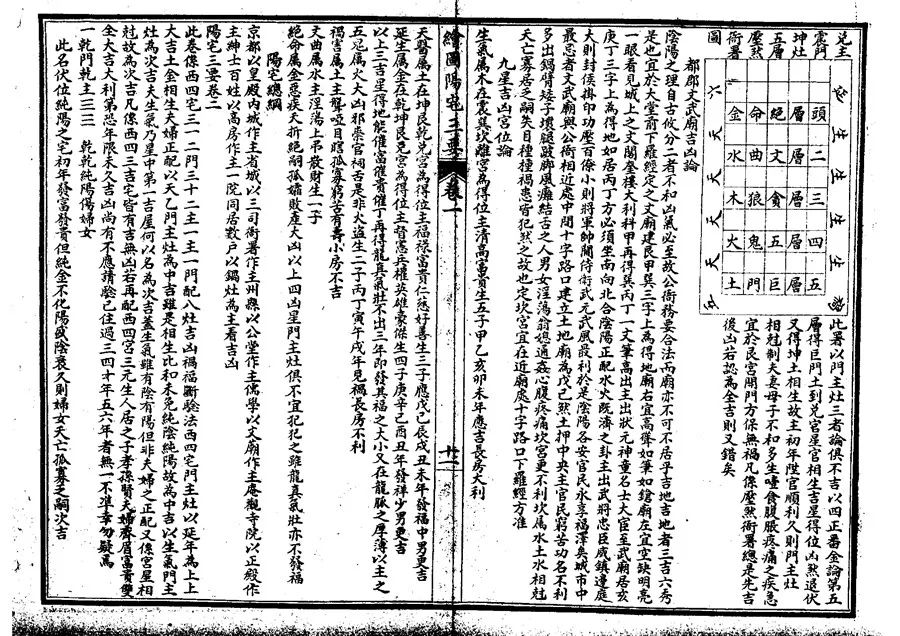 兌主
震門
坤灶
五層
壓煞
衙署
圖
延 生 生 生 絕
頭 二 三 四 五
層 層 層 層 層
絕 文 貪 五 巨
命 曲 狼 鬼 門
金 水 木 火 土
六 天 天 天
此署以門主灶三者論俱不吉以四正番金論第五
層得巨門土到兌宮星宮相生吉星得位凶煞退伏
又得坤土相生故主初年陞官順利久則門主灶
相尅制夫妻母子不和多生噎食腹脹疼痛之疾急
宜於艮宮開門方保無禍凡係壓煞衙署總是先吉
後凶若認為全吉則又錯矣
都郡文武廟吉凶論
陰陽之理自古攸分二者不和凶氣必至故公衙務要合法而廟亦不可不居乎吉地吉地者三吉六秀
是也宜於大堂前下羅經定之文廟建艮甲巽三字上為得地廟右宜高聳如筆如鎗廟左宜空缺明亮
一眼看見城上之文閣奎樓大利科甲再得巽丙丁一文筆高出主出狀元神童名士大宦至武廟居亥
庚丁三字上為得地如居丙丁方必須坐南向北合陰陽正配水火既濟之卦主出武將忠臣威鎮邊庭
大則封侯掛印功壓百僚小則將軍帥閫侍衛武元武風最利於是陰陽各安官民永享福澤矣城市中
最忌者文武廟與公衙相近處中間十字路口建立土地廟為戊己煞土押中央主官民窮苦功名不利
多出鍋臂矮子壞腿跛腳風癱結舌之人男女淫蕩翁媳通姦心腹疼痛坎宮更不利坎属水土水相尅
夭亡寡居乏嗣失目種種禍患皆犯煞之故也定坎宮宜在近廟處十字路口下羅經方准
九星吉凶宮位論
生氣属木在震巽坎離宮為得位主清高富貴生五子甲乙亥卯未年應吉長房大利
天醫属土在坤艮乾兌宮為得位主福祿富貴仁慈好善生三子應戊己辰戌丑未年發福中男更吉
延年属金在乾坤艮兌宮為得位主督憲兵權英雄豪傑生四子庚辛巳酉丑年發祥少男更吉
以上三吉星得地能催富催貴催丁再得龍真氣壯不出三年即發其福之大小又在龍脈之厚薄以主之
五鬼属火大凶邪祟口舌是非火盜生二子丙丁寅午戌年見禍長房不利
禍害属土主聾啞目瞎孤寡窮苦有壽小房不吉
文曲属水主淫蕩上吊敗財生一子
絕命属金惡疾夭折絕嗣孤孀敗產大凶以上四凶星門主灶俱不宜犯犯之雖龍真氣壯亦不發福
陽宅總綱
京都以皇殿內城作主省城以三司衙署作主州縣以公堂作主儒學以文廟作主庵觀寺院以正殿作
主紳士百姓以高房作主一院同居數戶以鍋灶為主看吉凶
陽宅三要卷二
此卷係西四宅三一二門三十二主一主一門配八灶吉凶禍福斷驗法西四宅門主灶以延年為上上
大吉土金相生夫婦正配以天乙門主灶為中吉雖是相生比和未免純陰純陽故為中吉以生氣門主
灶為次吉夫生氣乃星中第一吉星何以名為次吉蓋生氣雖有陰有陽但非夫婦之正配又係宮星相
尅故為次吉凡係西四三吉宅皆有吉無凶若再配西四宮三元生人居之子孝孫賢夫婦齊眉富貴雙
全大吉大利第恐年限未久吉凶尚有不應請驗已住過三四十年五六年者無一不準幸勿疑焉
一乾門乾主☰☰乾乾純陽傷婦女
此名伏位純陽之宅初年發富發貴但純金不化陽盛陰衰久則婦女夭亡孤寡乏嗣次吉
繪圖陽宅三要
卷一